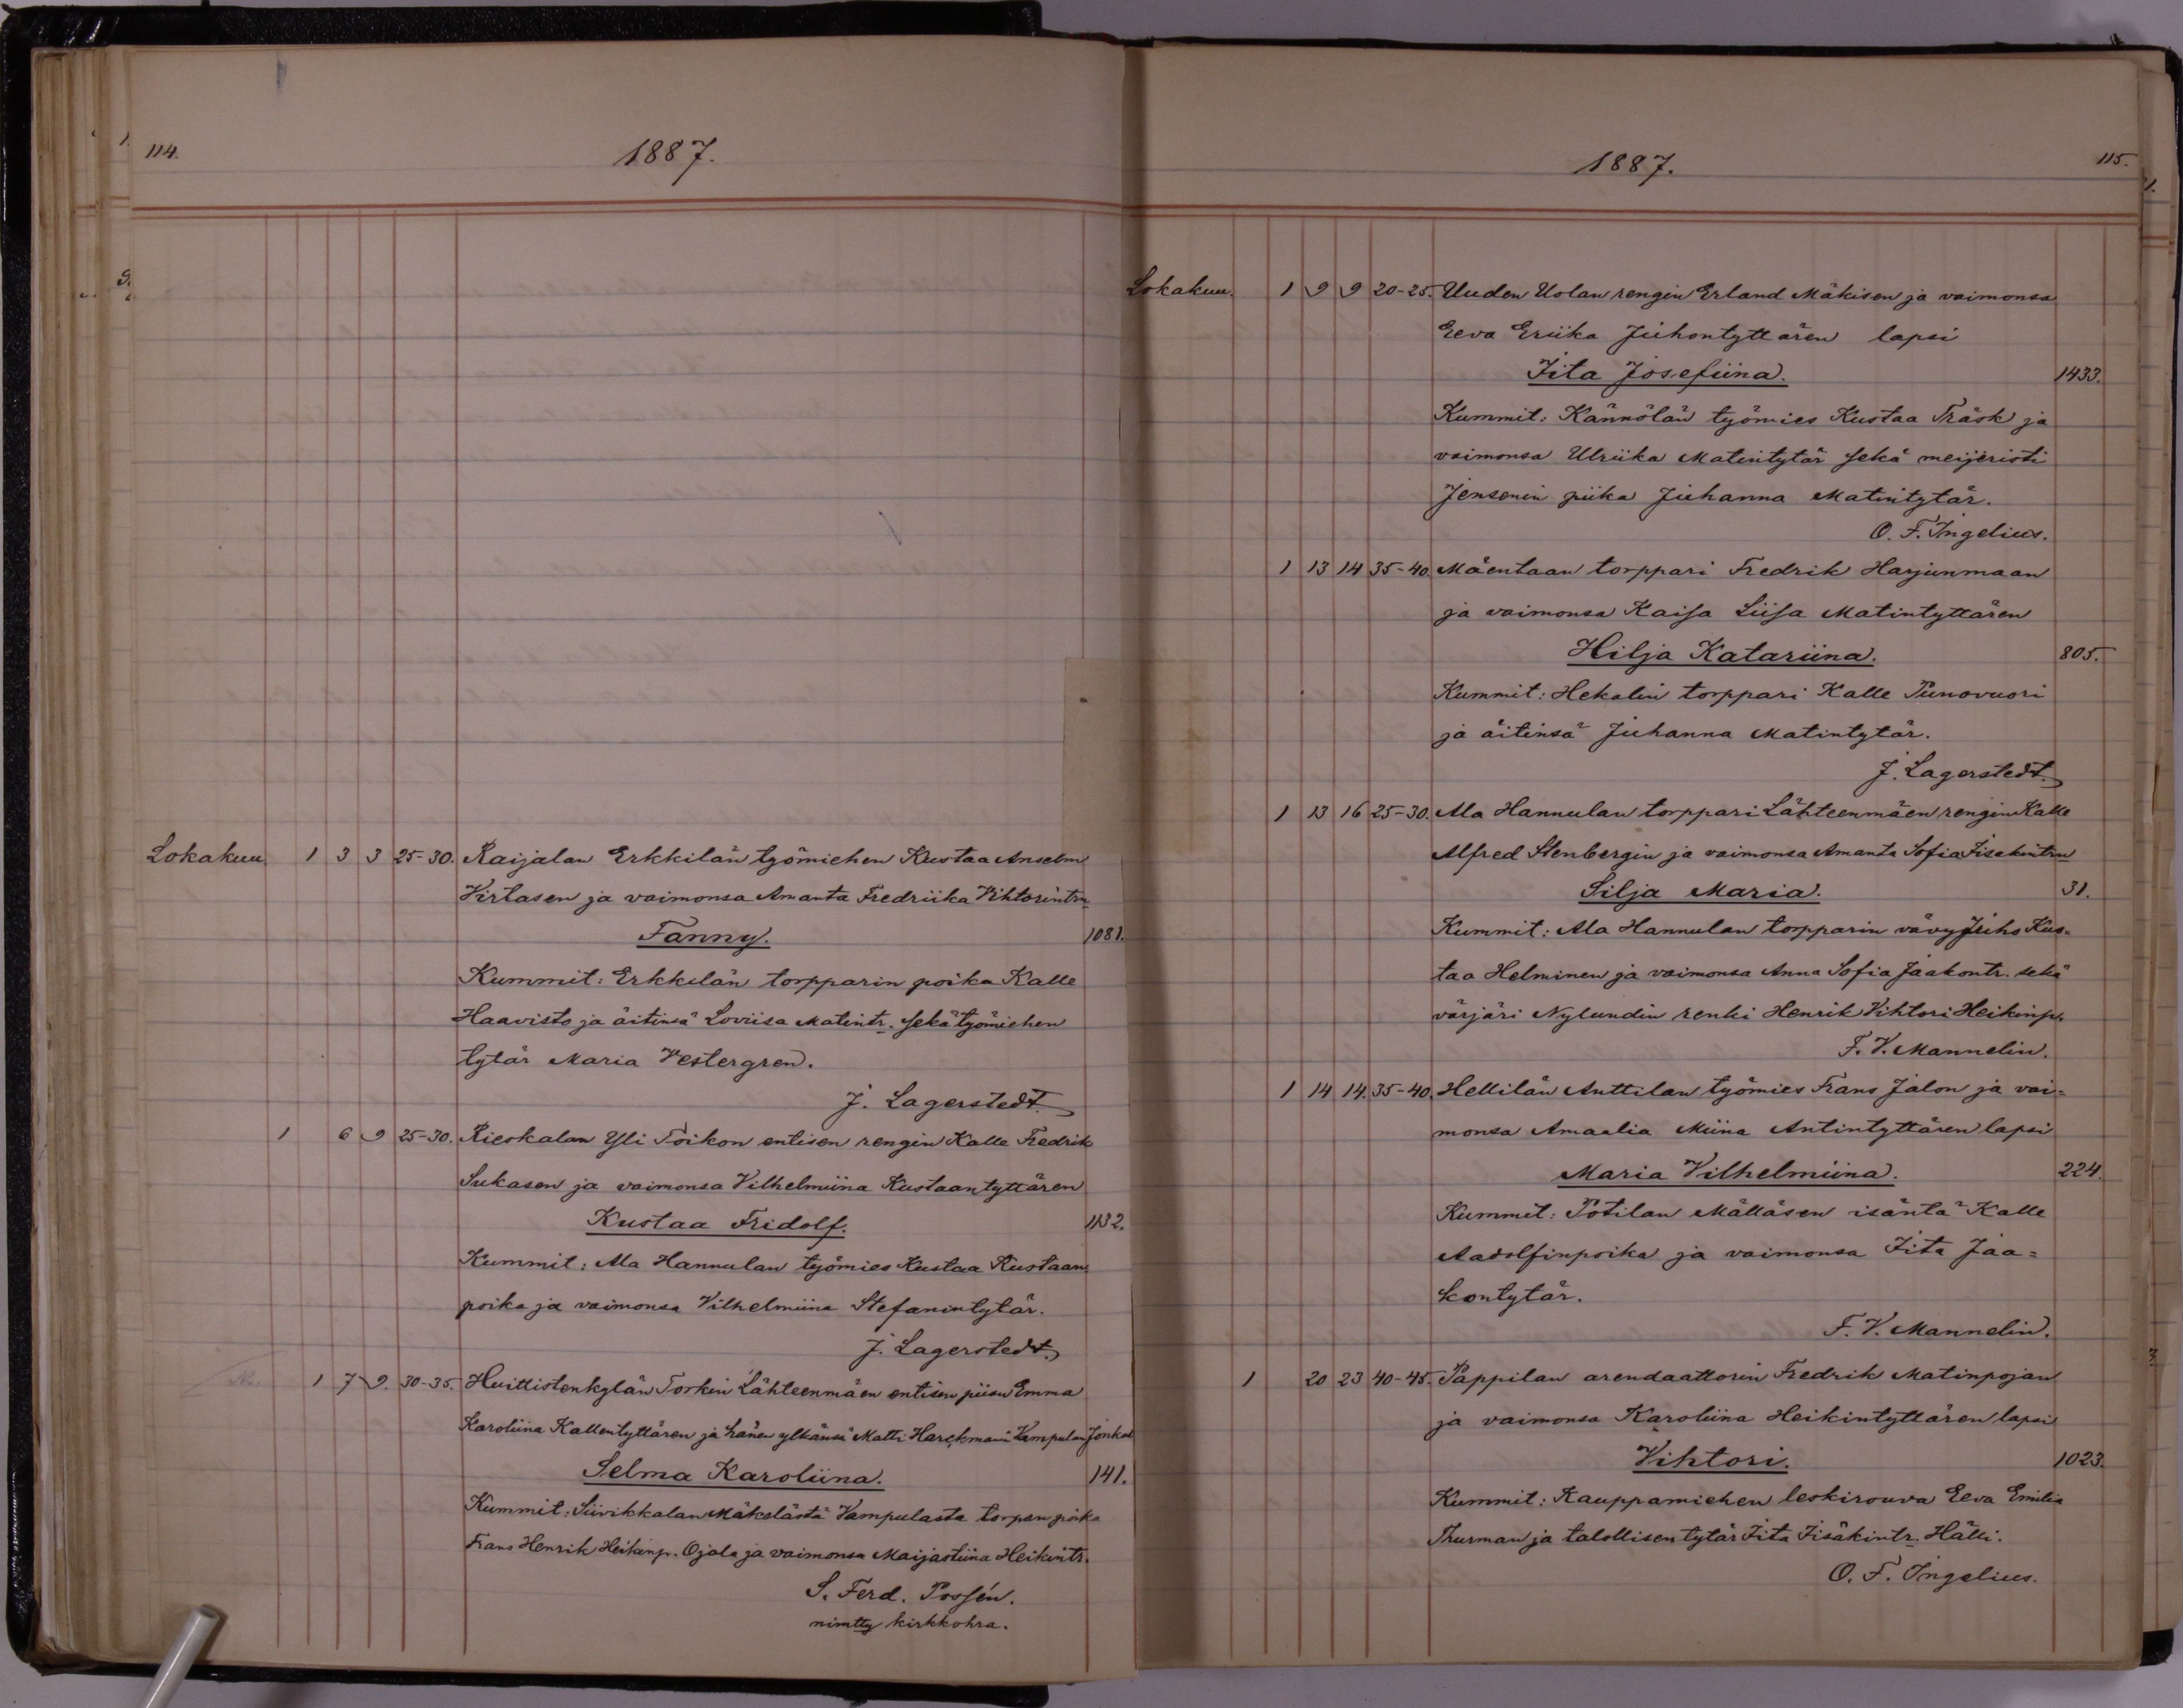 114.
1887.
Lokakuu 1 3 3 25-30. Raijalan Erkkilän työmiehen Kustaa Anselm
Virtasen ja vaimonsa Amanta Fredriika Vihtorintrn
Fanny. 1081.
Kummit: Erkkilän torpparin poika Kalle
Haavisto ja äitinsä Loviisa Matintr. sekä työmiehen
tytär Maria Vestergren.
J. Lagerstedt.
1 6 9 25-30. Rieskalan Yli Toikon entisen rengin Kalle Fredrik
Sukasen ja vaimonsa Vilhelmiina Kustaantyttären
Kustaa Fridolf. 1132.
Kummit: Ala Hannulan työmies Kustaa Kustaan
poika ja vaimonsa Vilhelmiina Stefanintytär.
J. Lagerstedt.
1 7 9. 30-35. Huittistenkylän Torkin Lähteenmäen entisen piian Emma
Karoliina Kallentyttären ja hänen ylkänsä Matti Harckmanin Vampulan
Selma Karoliina. 141.
Kummit: Siivikkalan Mäkelästä Vampulasta torpan poika
Frans Henrik Heikinp. Ojala ja vaimonsa Maijastiina Heikintr.
S. Ferd. Possén.
nimtty kirkkohra.
1887.
115.
Lokakuu. 1 9 9 20-25. Uuden Uolan rengin Erland Mäkisen ja vaimonsa
Eeva Eriika Juhontyttären lapsi
Iita Josefiina. 1433.
Kummit: Kännölän työmies Kustaa Träsk ja
vaimonsa Ulriika Matintytär sekä meijeristi
Jensenin piika Juhanna Matintytär.
O. F. Ingelius.
1 13 14 35-40. Mäentaan torppari Fredrik Harjunmaan
ja vaimonsa Kaisa Liisa Matintyttären
Hilja Katariina. 805.
Kummit: Hekalin torppari Kalle Punovuori
ja äitinsä Juhanna Matintytär.
J. Lagerstedt.
1 13 16 25-30. Ala Hannulan torppari Lähteenmäen rengin Kalle
Alfred Stenbergin ja vaimonsa Amanta Sofia Iisakintrn
Silja Maria. 31.
Kummit: Ala Hannulan torpparin vävy Juho Kus-
taa Helminen ja vaimonsa Anna Sofia Jaakontr. sekä
värjäri Nylundin renki Henrik Vihtori Heikinp.
F. V. Mannelin.
1 14 14. 35-40. Hellilän Anttilan työmies Frans Jalon ja vai-
monsa Amaalia Miina Antintyttären lapsi
Maria Vilhelmiina. 224.
Kummit: Pötilan Mälläsen isäntä Kalle
Aadolfinpoika ja vaimonsa Iita Jaa-
kontytär.
F. V. Mannelin.
1 20 23 40-45. Pappilan arendaattorin Fredrik Matinpojan
ja vaimonsa Karoliina Heikintyttären lapsi
Vihtori. 1023.
Kummit: Kauppamiehen leskirouva Eeva Emilia
Thurman ja talollisen tytär Iita Iisäkintr. Hälli.
O. F. Ingelius.